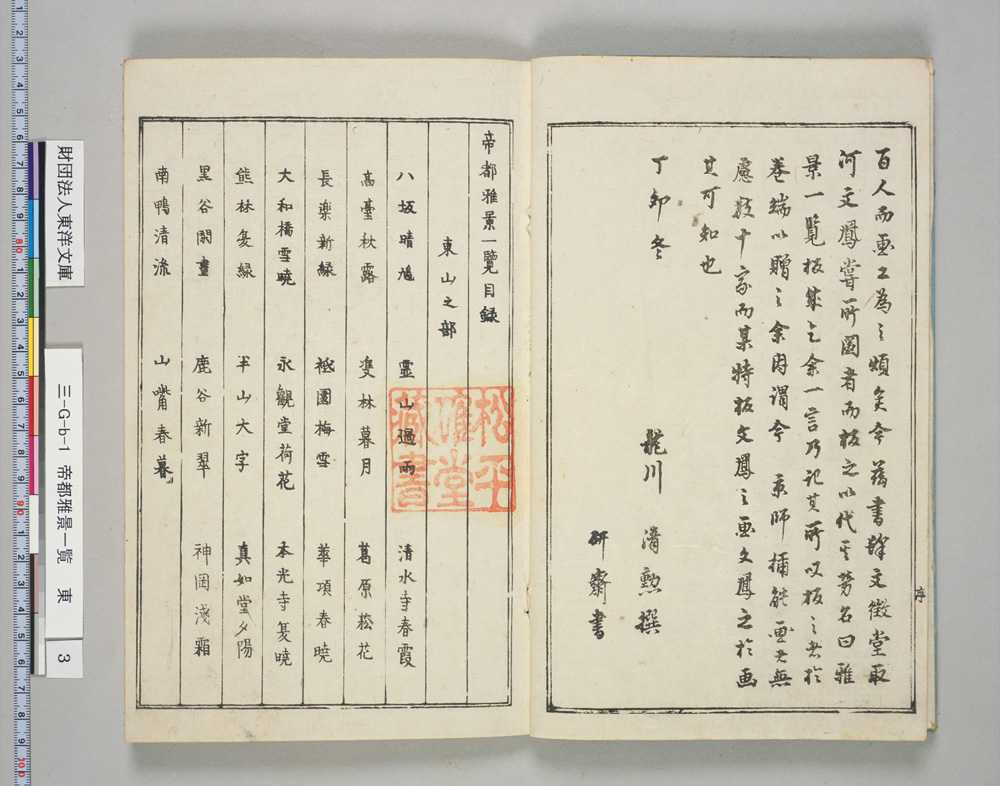 百人而画工為之煩矣今茲書肆文徴堂取
河文鳳嘗所図者而板之以代其労名曰雅
景一覧板成乞余一言乃記其所以板之者於
巻端以贈之余因謂今京師捕能画者無
慮数十家而某特板文鳳之画文鳳之於画
其可知也
丁卯冬
龍川 清勲撰
研齋書
序
帝都雅景一覽目録
東山之部
八坂晴鳩 靈山過雨 清水寺春霞
高臺秋露 雙林暮月 葛原菘花
長楽新緑 祗園梅雪 華項春曉
大和橋雪曉 永觀堂荷花 本光寺夏曉
熊林夏緑 半山大字 真如堂夕陽
黒谷閑晝 鹿谷新翠 神岡淺霜
南鴨清流 山嘴春暮
松平
確堂
藏書
財団法人東洋文庫
三-G-b-1 帝都雅景一覧 東
3